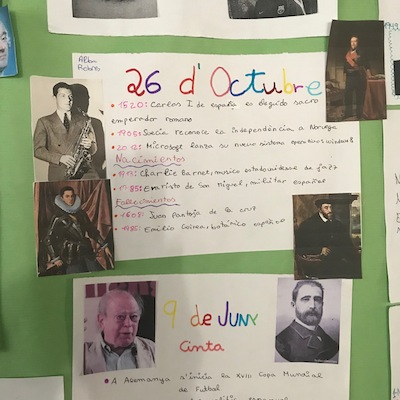 Alba
Robres
26 d'Octubre
• 1520: Carlos I de españa es elegido sacro
emperador romano
• 1905: Suecia reconoce la independència a Noruega
• 2012: Microsoft lanza su nuevo sistema operativo windows 8
Nacimientos
• 1913: Charlie Barnet, musico estadounidense de jazz
• 1785: Evaristo de San Miguel, militar español
Fallecimientos
• 1608: Juan Pantoja de la cruz
• 1985: Emilio Guinea, botánico español
9 de JUNY
Cinta
• A Alemanya s'inicia la XVIII Copa Mundial
de Futbol